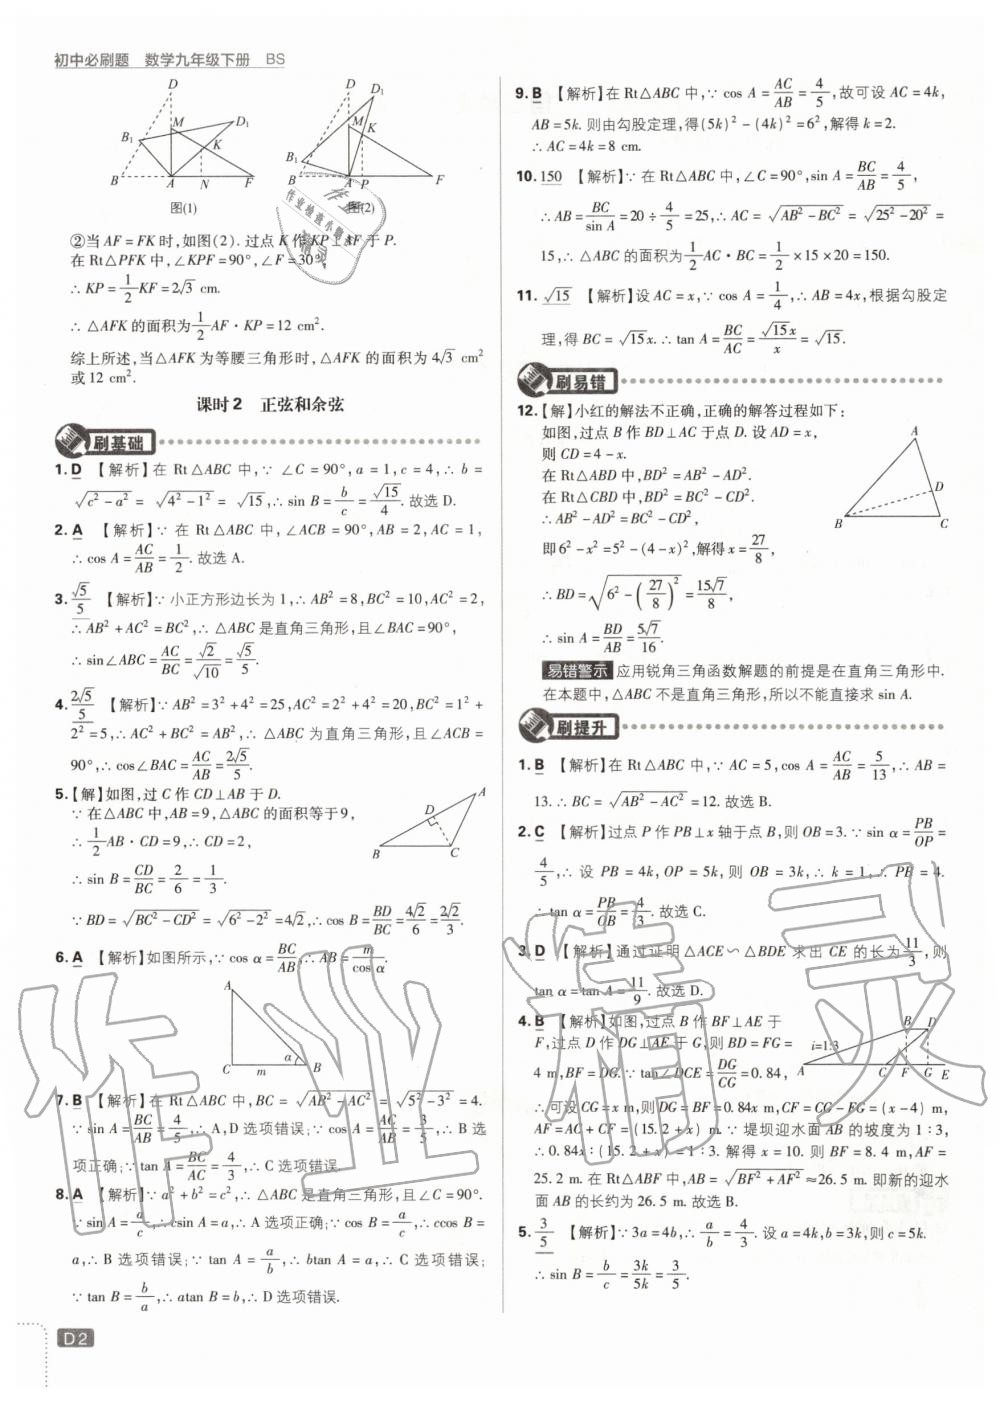 初中必刷题 数学九年级下册 BS
D D₁ M B₁ K B A N F
图(1)
D D₁ M K B₁ B A P F
图(2)
②当 AF = FK 时,如图(2). 过点 K 作 KP⊥AF 于 P.
在 Rt△PFK 中,∠KPF = 90°,∠F = 30°,
∴ KP = 1/2 KF = 2√3 cm.
∴ △AFK 的面积为 1/2 AF · KP = 12 cm².
综上所述,当△AFK 为等腰三角形时,△AFK 的面积为 4√3 cm²
或 12 cm².
课时2 正弦和余弦
刷基础
1. D 【解析】在 Rt△ABC 中,∵ ∠C = 90°,a = 1,c = 4,∴ b =
√(c² - a²) = √(4² - 1²) = √15,∴ sin B = b/c = √15/4. 故选 D.
2. A 【解析】∵ 在 Rt△ABC 中,∠ACB = 90°,AB = 2,AC = 1,
∴ cos A = AC/AB = 1/2. 故选 A.
3. √5/5 【解析】∵ 小正方形边长为 1,∴ AB² = 8,BC² = 10,AC² = 2,
∴ AB² + AC² = BC²,∴ △ABC 是直角三角形,且∠BAC = 90°,
∴ sin∠ABC = AC/BC = √2/√10 = √5/5.
4. 2√5/5 【解析】∵ AB² = 3² + 4² = 25,AC² = 2² + 4² = 20,BC² = 1² +
2² = 5,∴ AC² + BC² = AB²,∴ △ABC 为直角三角形,且∠ACB =
90°,∴ cos∠BAC = AC/AB = 2√5/5.
5.【解】如图,过 C 作 CD⊥AB 于 D.
∵ 在△ABC 中,AB = 9,△ABC 的面积等于 9,
∴ 1/2 AB · CD = 9,∴ CD = 2,
∴ sin B = CD/BC = 2/6 = 1/3.
A D B C
∵ BD = √(BC² - CD²) = √(6² - 2²) = 4√2,∴ cos B = BD/BC = 4√2/6 = 2√2/3.
6. A 【解析】如图所示,∵ cos α = BC/AB,∴ AB = m/cos α.
A α C m B
7. B 【解析】在 Rt△ABC 中,BC = √(AB² - AC²) = √(5² - 3²) = 4.
∵ sin A = BC/AB = 4/5,∴ A,D 选项错误;∵ cos A = AC/AB = 3/5,∴ B 选
项正确;∵ tan A = BC/AC = 4/3,∴ C 选项错误.
8. A 【解析】∵ a² + b² = c²,∴ △ABC 是直角三角形,且∠C = 90°.
∵ sin A = a/c,∴ csin A = a,∴ A 选项正确;∵ cos B = a/c,∴ ccos B =
a,∴ B 选项错误;∵ tan A = a/b,∴ btan A = a,∴ C 选项错误;
∵ tan B = b/a,∴ atan B = b,∴ D 选项错误.
D2
9. B 【解析】在 Rt△ABC 中,∵ cos A = AC/AB = 4/5,故可设 AC = 4k,
AB = 5k. 则由勾股定理,得(5k)² - (4k)² = 6²,解得 k = 2.
∴ AC = 4k = 8 cm.
10. 150 【解析】∵ 在 Rt△ABC 中,∠C = 90°,sin A = BC/AB = 4/5,
∴ AB = BC/sin A = 20 ÷ 4/5 = 25,∴ AC = √(AB² - BC²) = √(25² - 20²) =
15,∴ △ABC 的面积为 1/2 AC · BC = 1/2 × 15 × 20 = 150.
11. √15 【解析】设 AC = x,∵ cos A = 1/4,∴ AB = 4x,根据勾股定
理,得 BC = √15 x. ∴ tan A = BC/AC = √15 x/x = √15.
刷易错
12.【解】小红的解法不正确,正确的解答过程如下:
如图,过点 B 作 BD⊥AC 于点 D. 设 AD = x,
则 CD = 4 - x.
在 Rt△ABD 中,BD² = AB² - AD².
在 Rt△CBD 中,BD² = BC² - CD².
∴ AB² - AD² = BC² - CD²,
即 6² - x² = 5² - (4 - x)²,解得 x = 27/8,
A D B C
∴ BD = √(6² - (27/8)²) = 15√7/8,
∴ sin A = BD/AB = 5√7/16.
易错警示 应用锐角三角函数解题的前提是在直角三角形中.
在本题中,△ABC 不是直角三角形,所以不能直接求 sin A.
刷提升
1. B 【解析】在 Rt△ABC 中,∵ AC = 5,cos A = AC/AB = 5/13,∴ AB =
13. ∴ BC = √(AB² - AC²) = 12. 故选 B.
2. C 【解析】过点 P 作 PB⊥x 轴于点 B,则 OB = 3. ∵ sin α = PB/OP =
4/5,∴ 设 PB = 4k,OP = 5k,则 OB = 3k,∴ k = 1,∴ PB = 4.
∴ tan α = PB/OB = 4/3. 故选 C.
3. D 【解析】通过证明△ACE∽△BDE 求出 CE 的长为 11/3,则
tan α = tan A = 11/9. 故选 D.
4. B 【解析】如图,过点 B 作 BF⊥AE 于
F,过点 D 作 DG⊥AE 于 G,则 BD = FG =
4 m,BF = DG. ∵ tan∠DCE = DG/CG = 0.84,
B D i=1:3 A C F G E
∴ 可设 CG = x m,则 DG = BF = 0.84x m,CF = CG - FG = (x - 4) m,
AF = AC + CF = (15.2 + x) m. ∵ 堤坝迎水面 AB 的坡度为 1∶3,
∴ 0.84x∶(15.2 + x) = 1∶3. 解得 x = 10. 则 BF = 8.4 m,AF =
25.2 m. 在 Rt△ABF 中,AB = √(BF² + AF²) ≈ 26.5 m. 即新的迎水
面 AB 的长约为 26.5 m. 故选 B.
5. 3/5 【解析】∵ 3a = 4b,∴ a/b = 4/3. 设 a = 4k,b = 3k,则 c = 5k.
∴ sin B = b/c = 3k/5k = 3/5.
作业精灵